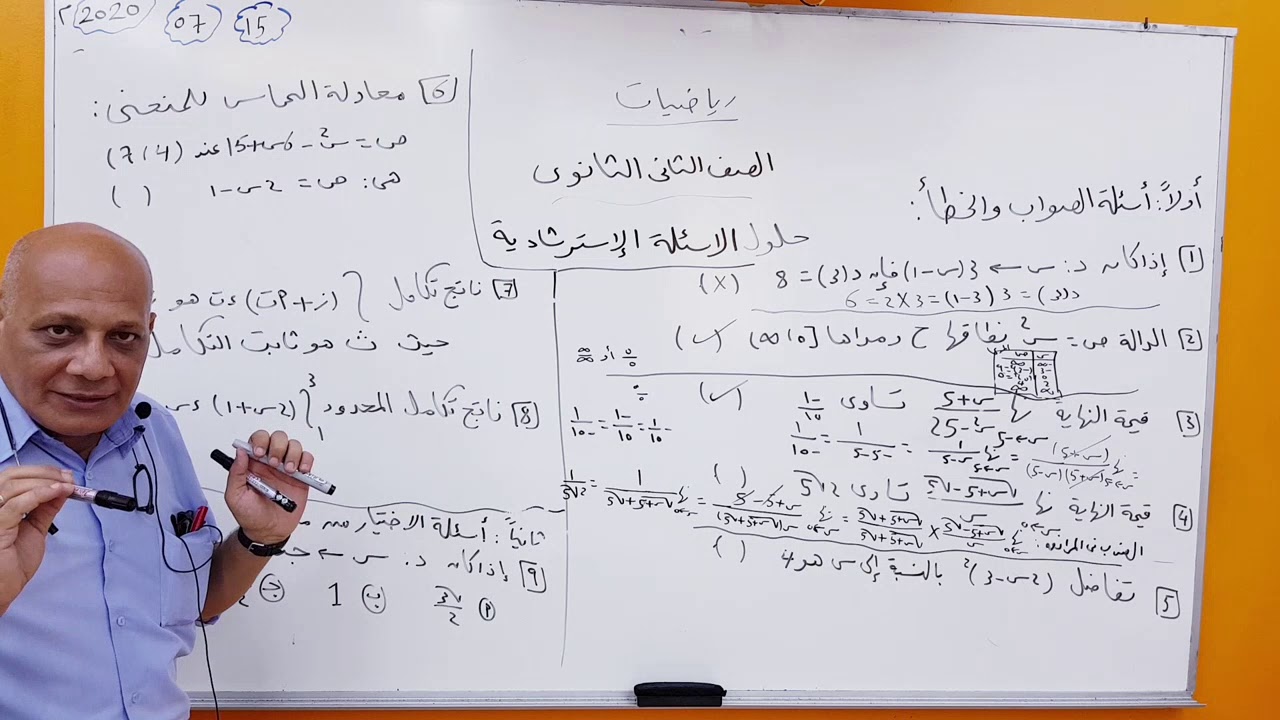 2020 07 15
رياضيات
الصف الثانى الثانوى
حلول الاسئلة الإسترشادية
أولاً: أسئلة الصواب والخطأ:
[1] إذا كان د: س ← 3(س-1) فإن د(3) = 8 (X)
د(3) = 3(3-1) = 3×2 = 6
[2] الدالة ص = س² نطاقها ح ومداها [0، ∞) (✓)
[3] قيمة النهاية نها (س+5)/(س²-25) تساوى -1/10 (✓)
س←-5
0/0 أو ∞/∞
= نها (س+5)/((س+5)(س-5)) = نها 1/(س-5) = 1/(-5-5) = 1/-10
1/-10 = -1/10 = -1/10
[4] قيمة النهاية نها (√(س+5)-√5)/س تساوى 2√5 ( )
س←0
نها (√(س+5)-√5)/س × (√(س+5)+√5)/(√(س+5)+√5) = نها (س+5-5)/(س(√(س+5)+√5)) = نها 1/(√(س+5)+√5) = 1/2√5
[5] تفاضل (2س-3)² بالنسبة إلى س هو 4 ( )
[6] معادلة المماس للمنحنى:
ص = س²-6س+15 عند (4، 7)
هى: ص = 2س-1 ( )
[7] ناتج تكامل ∫(ز+أت) ءت هو
حيث ث هو ثابت التكامل
[8] ناتج تكامل المحدود ∫₁³ (2س+1) ءس
ثانياً: أسئلة الاختيار من
[9] إذا كان د: س ←
أ √3/2 ب 1 ج